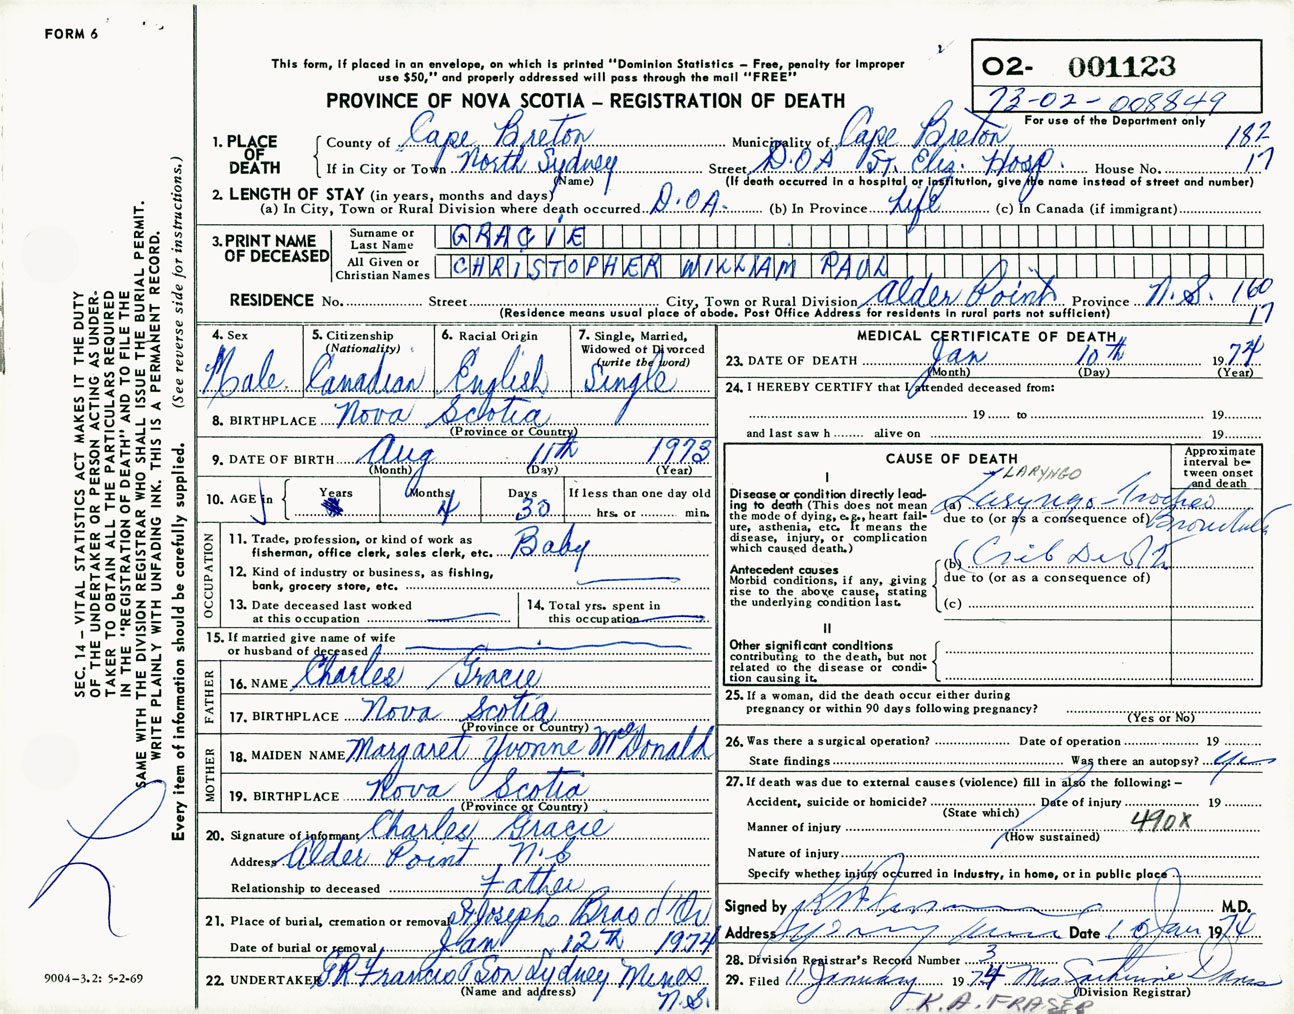 FORM 6
This form, if placed in an envelope, on which is printed "Dominion Statistics – Free, penalty for improper
use $50," and properly addressed will pass through the mail "FREE"
PROVINCE OF NOVA SCOTIA – REGISTRATION OF DEATH
02- 001123
73-02-008849
For use of the Department only
1. PLACE OF DEATH
County of Cape Breton Municipality of Cape Breton 182
If in City or Town North Sydney Street D.O.A St. Eliz. Hosp. House No. 17
(Name) (If death occurred in a hospital or institution, give the name instead of street and number)
2. LENGTH OF STAY (in years, months and days)
(a) In City, Town or Rural Division where death occurred D.O.A. (b) In Province Life (c) In Canada (if immigrant)
3. PRINT NAME OF DECEASED
Surname or Last Name GRACIE
All Given or Christian Names CHRISTOPHER WILLIAM PAUL
RESIDENCE No. Street City, Town or Rural Division Alder Point Province N.S. 160
(Residence means usual place of abode. Post Office Address for residents in rural parts not sufficient) 17
4. Sex
Male
5. Citizenship
(Nationality)
Canadian
6. Racial Origin
English
7. Single, Married,
Widowed or Divorced
(write the word)
Single
8. BIRTHPLACE Nova Scotia
(Province or Country)
9. DATE OF BIRTH Aug 11th 1973
(Month) (Day) (Year)
10. AGE in Years Months 4 Days 30 If less than one day old
hrs. or min.
OCCUPATION
11. Trade, profession, or kind of work as
fisherman, office clerk, sales clerk, etc. Baby
12. Kind of industry or business, as fishing,
bank, grocery store, etc.
13. Date deceased last worked
at this occupation
14. Total yrs. spent in
this occupation
15. If married give name of wife
or husband of deceased
FATHER
16. NAME Charles Gracie
17. BIRTHPLACE Nova Scotia
(Province or Country)
MOTHER
18. MAIDEN NAME Margaret Yvonne McDonald
19. BIRTHPLACE Nova Scotia
(Province or Country)
20. Signature of informant Charles Gracie
Address Alder Point N.S
Relationship to deceased Father
21. Place of burial, cremation or removal St Josephs Bras d'Or
Date of burial or removal Jan 12th 1974
22. UNDERTAKER Francis & Son Sydney Mines
(Name and address) N.S.
MEDICAL CERTIFICATE OF DEATH
23. DATE OF DEATH Jan 10th 1974
(Month) (Day) (Year)
24. I HEREBY CERTIFY that I attended deceased from:
19 to 19
and last saw h alive on 19
CAUSE OF DEATH
Approximate
interval be-
tween onset
and death
I
Disease or condition directly lead-
ing to death (This does not mean
the mode of dying, e.g., heart fail-
ure, asthenia, etc. It means the
disease, injury, or complication
which caused death.)
LARYNGO
(a) Laryngo-Tracheo
due to (or as a consequence of) Bronchitis
Antecedent causes
Morbid conditions, if any, giving
rise to the above cause, stating
the underlying condition last.
(b) Crib Death
due to (or as a consequence of)
(c)
II
Other significant conditions
contributing to the death, but not
related to the disease or condi-
tion causing it.
25. If a woman, did the death occur either during
pregnancy or within 90 days following pregnancy?
(Yes or No)
26. Was there a surgical operation? Date of operation 19
State findings Was there an autopsy? Yes
27. If death was due to external causes (violence) fill in also the following: –
Accident, suicide or homicide? Date of injury 19
(State which)
Manner of injury 490X
(How sustained)
Nature of injury
Specify whether injury occurred in industry, in home, or in public place
Signed by M.D.
Address Sydney Mines Date 10 Jan 1974
28. Division Registrar's Record Number 3
29. Filed 11 January 1974 Mrs. Catherine Davis
(Division Registrar)
K.A. FRASER
SEC. 14 – VITAL STATISTICS ACT MAKES IT THE DUTY
OF THE UNDERTAKER OR PERSON ACTING AS UNDER-
TAKER TO OBTAIN ALL THE PARTICULARS REQUIRED
IN THE "REGISTRATION OF DEATH" AND TO FILE THE
SAME WITH THE DIVISION REGISTRAR WHO SHALL ISSUE THE BURIAL PERMIT.
WRITE PLAINLY WITH UNFADING INK. THIS IS A PERMANENT RECORD.
Every item of information should be carefully supplied. (See reverse side for instructions.)
9004–3.2: 5-2-69